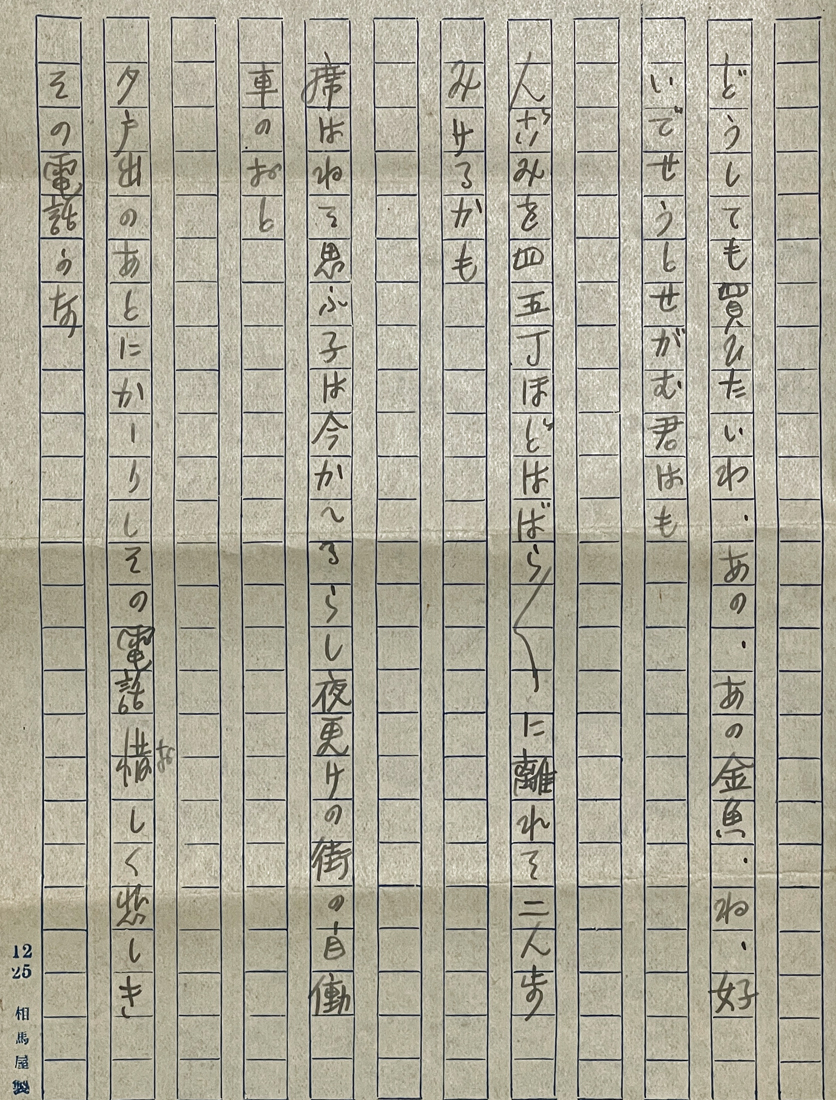 どうしても買ひたいわ、あの、あの金魚、ね、好
いでせうとせがむ君はも
人ごみを四五丁ほどはばら〳〵に離れて二人歩
みけるかも
席はねて思ふ子は今かへるらし夜更けの街の自働
車のおと
夕戸出のあとにかゝりしその電話惜しく
しき
その電話かな
12
25
相馬屋製